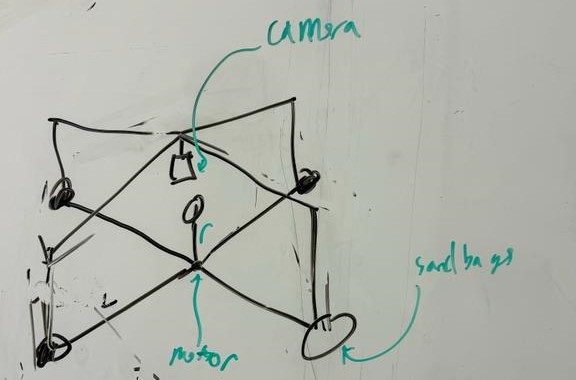 camera
r
sandbags
motor